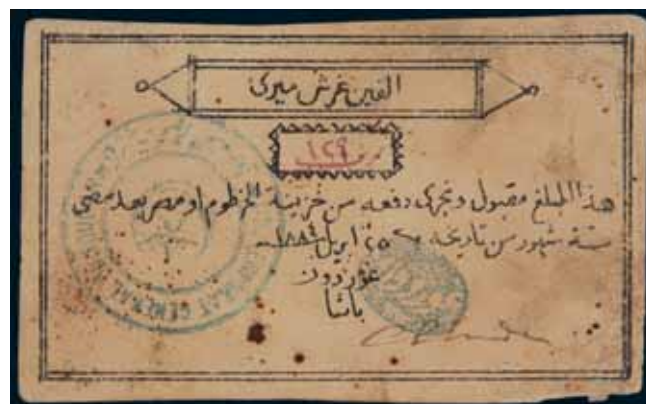 الفين غرش ميرى
نمرة ١٢٩
هذا المبلغ مقبول ونجرى دفعه من خزينة الخرطوم او مصر بعد مضى
ستة شهور من تاريخه ٢٥ ابريل ١٨٨٤
غوردون
باشا
GENERAL